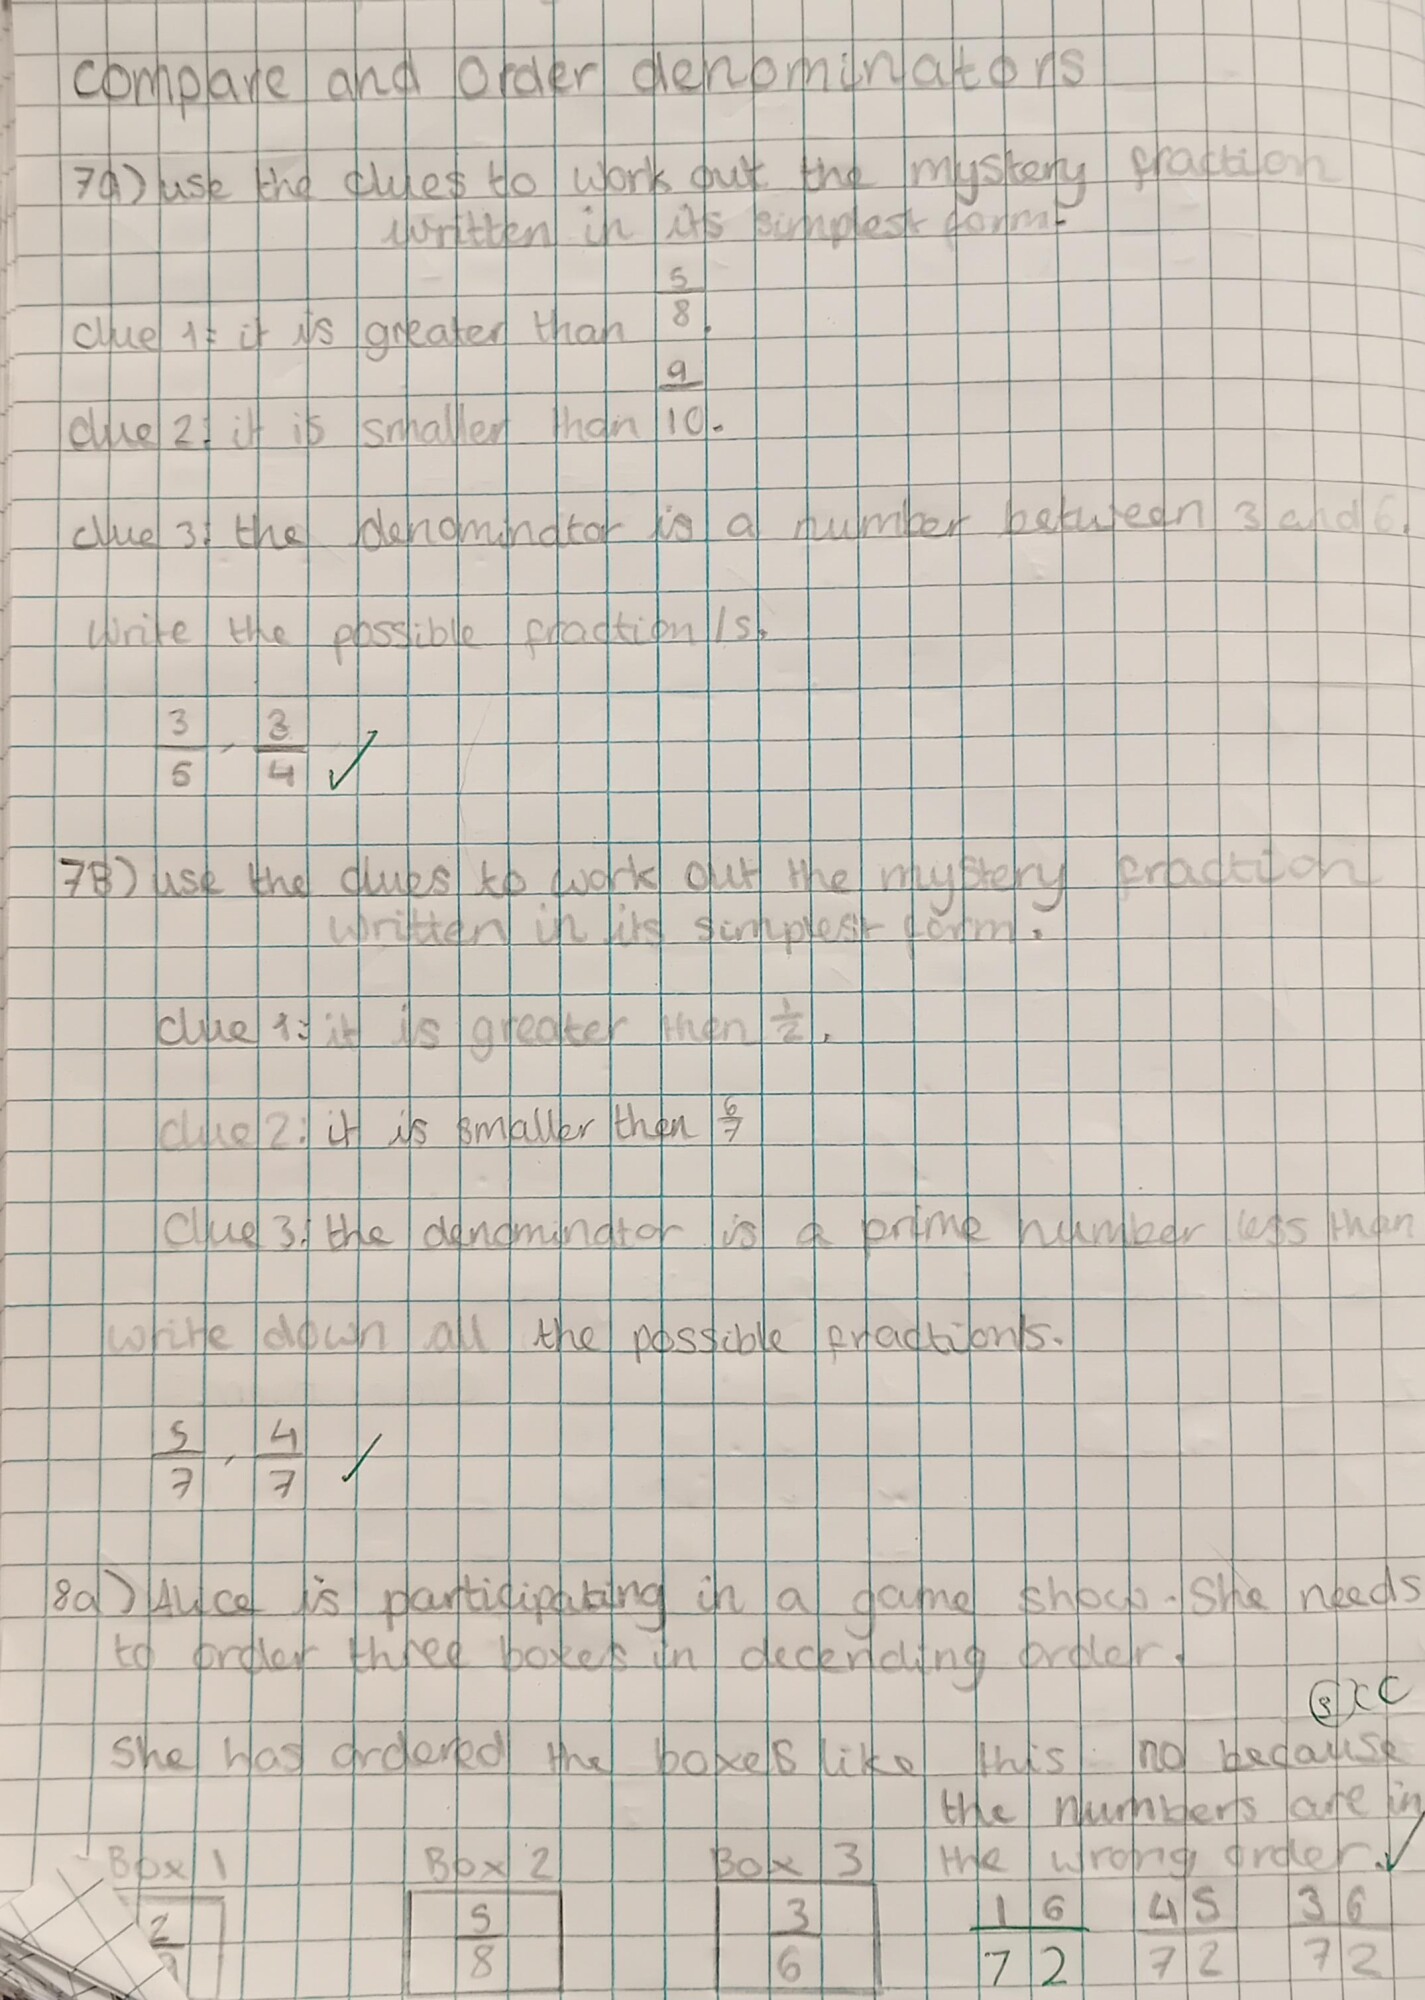 compare and order denominators
7a) use the clues to work out the mystery fraction
written in its simplest form.
clue 1: it is greater than 5/8.
clue 2: it is smaller than 9/10.
clue 3: the denominator is a number between 3 and 6.
write the possible fraction/s.
3/5, 3/4 ✓
7B) use the clues to work out the mystery fraction
written in its simplest form.
clue 1: it is greater then 1/2.
clue 2: it is smaller then 6/7
clue 3: the denominator is a prime number less than
write down all the possible fractions.
5/7, 4/7 ✓
8a) Alice is participating in a game show. She needs
to order three boxes in decending order.
she has ordered the boxes like this no because
the numbers are in
the wrong order. ✓
Box 1 Box 2 Box 3
5/8 3/6 16/72 45/72 36/72